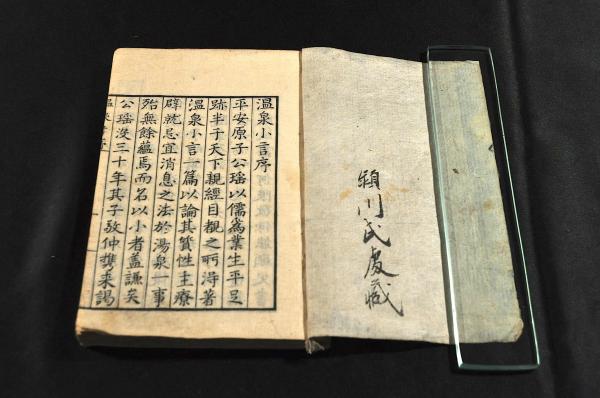 穎川氏處藏
温泉小言序
平安原子公瑤以儒為業生平足
跡半于天下親經目覩之所得著
温泉小言一篇以論其質性主療
辟就忌宜消息之法於湯泉一事
殆無餘蘊焉而名以小者蓋謙矣
公瑤没三十年其子敬仲携來謁